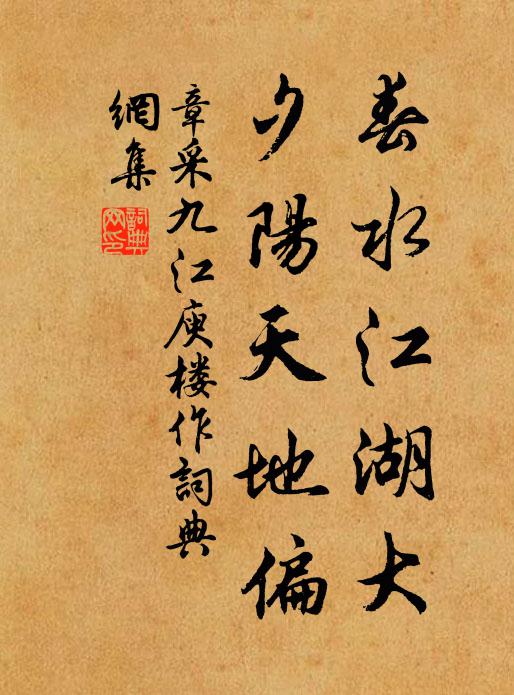 春水江湖大
夕陽天地偏
章采九江庾楼作詞典
網集
詞典
网印